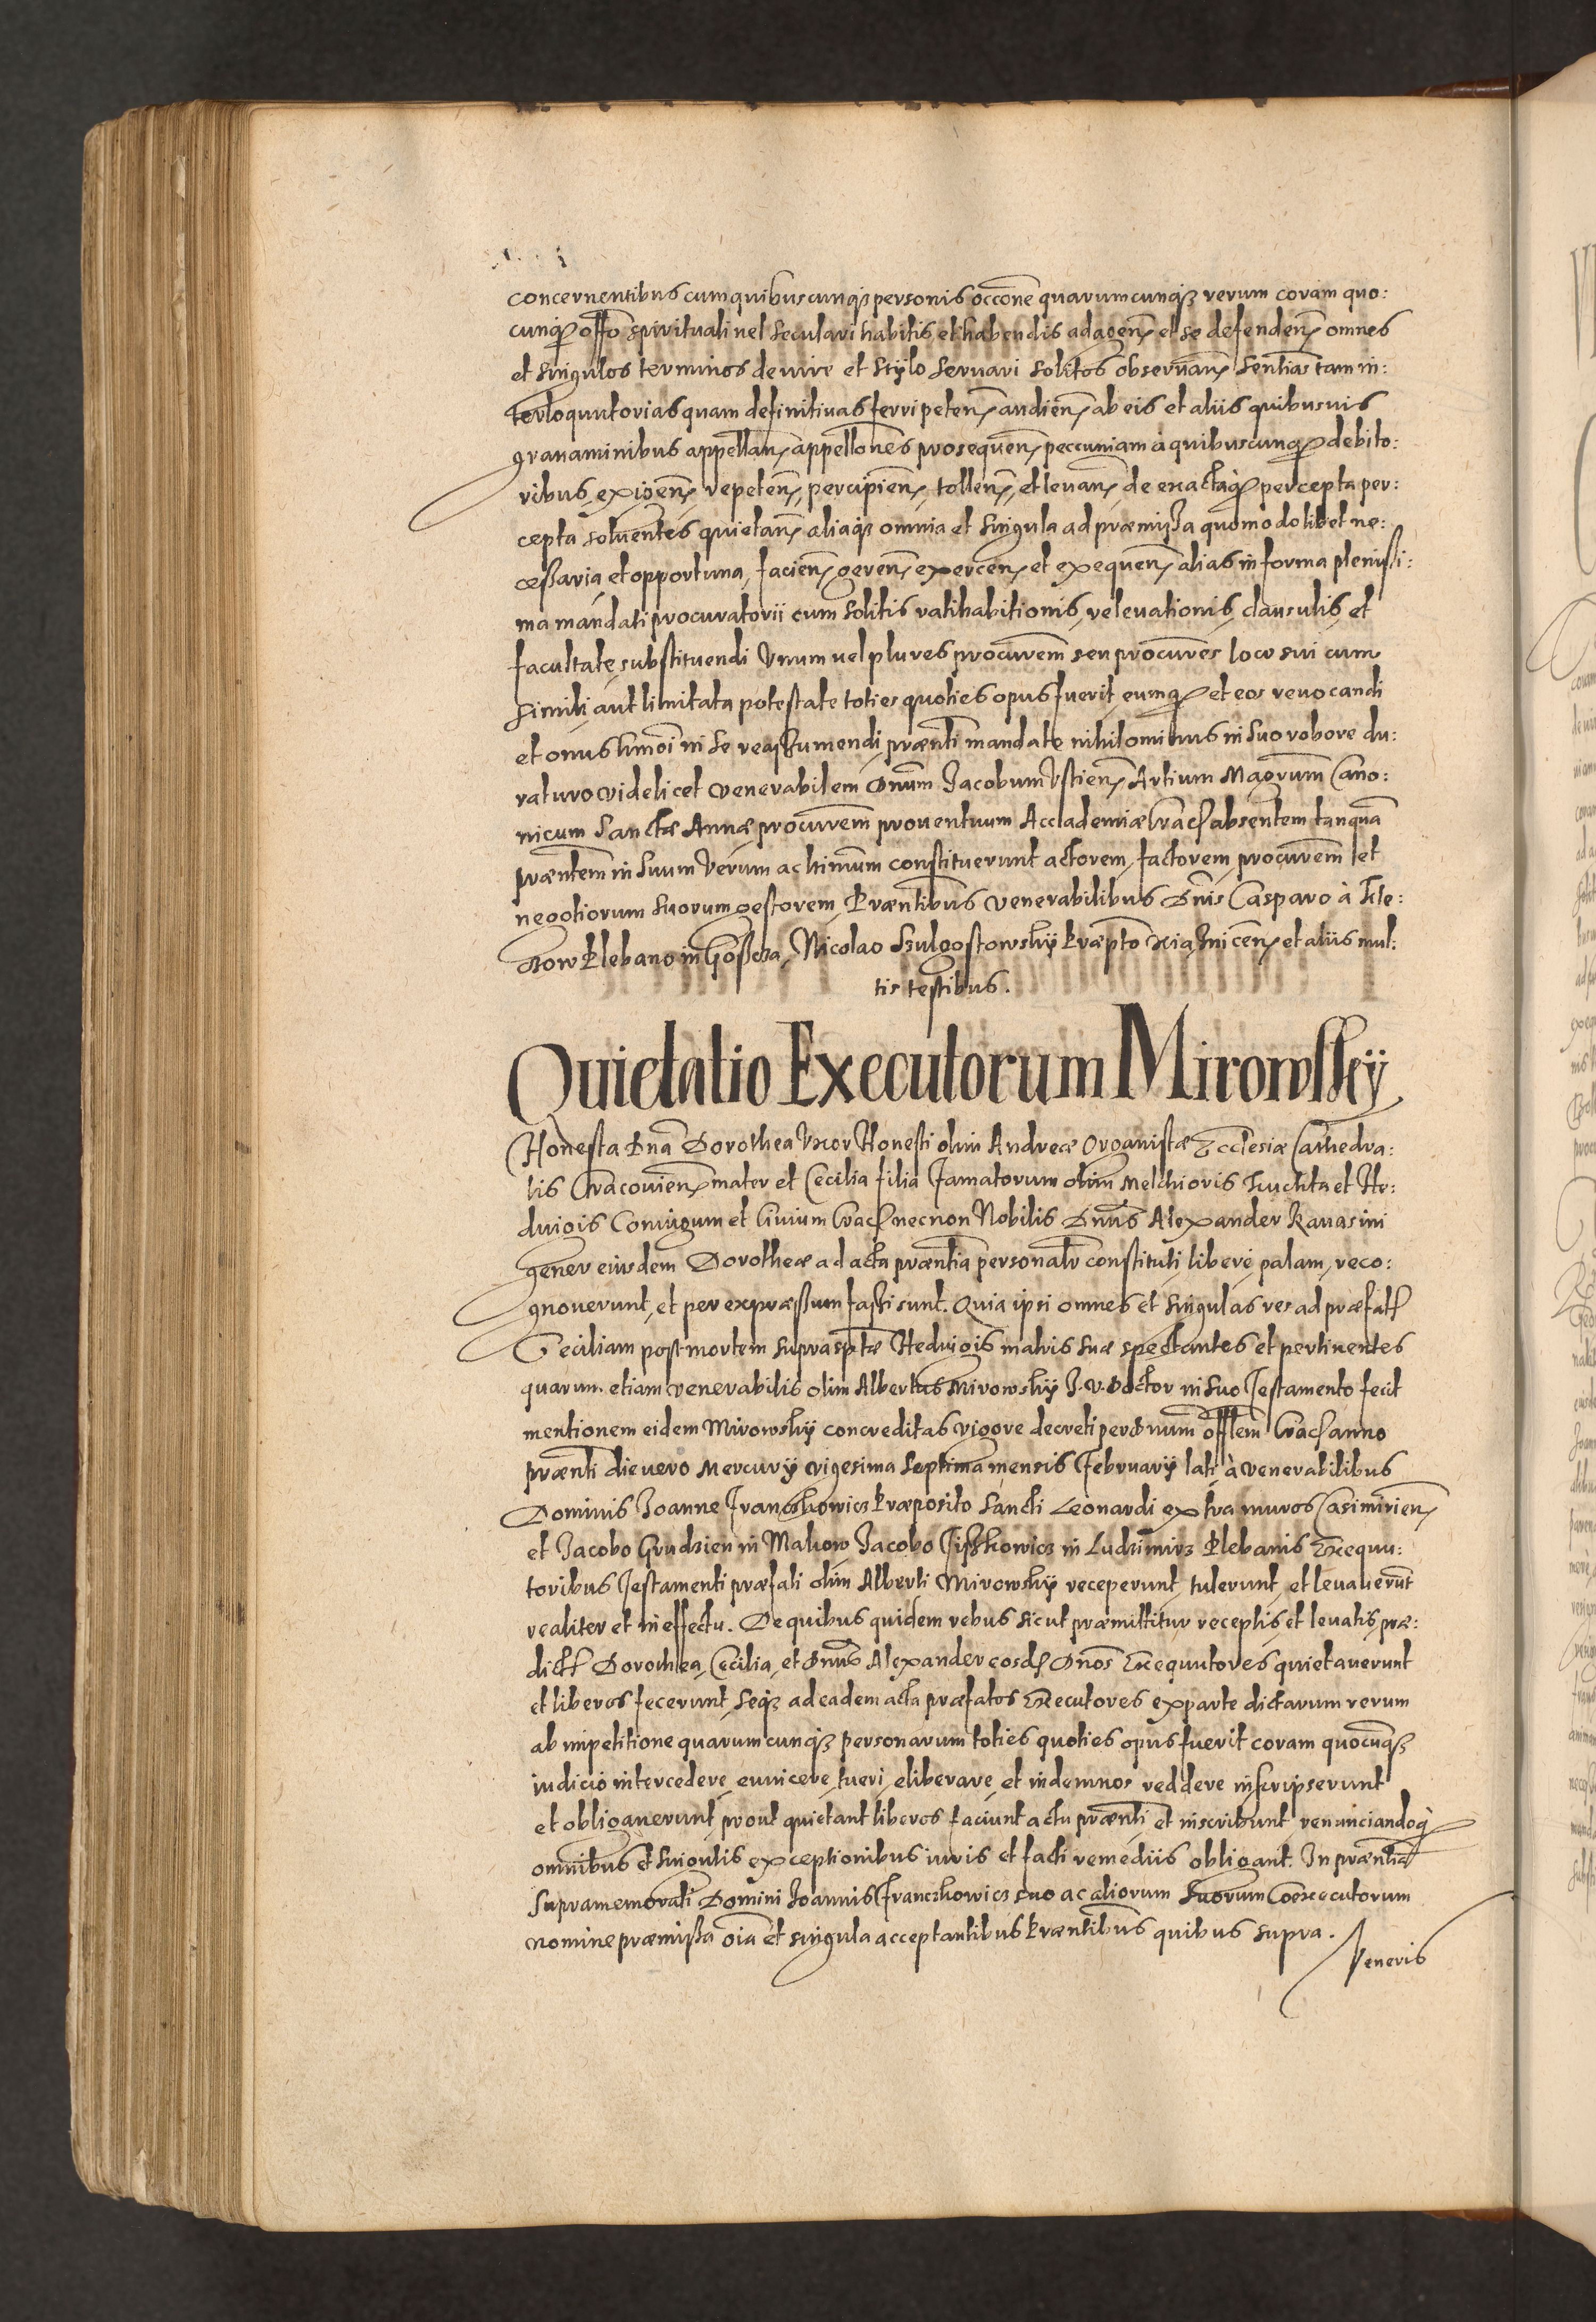 concernentibus cum quibuscunqꝫ personis occone quarumcunqꝫ rerum coram quo:
cunqꝫ offo spirituali uel seculari habitis et habendis ad agenꝫ et se defendenꝫ omnes
et singulos terminos de iure et stylo seruari solitos obseruanꝫ sentias tam in:
terloquutorias quam definitiuas ferri petenꝫ audienꝫ ab eis et aliis quibusuis
grauaminibus appellanꝫ appellones prosequenꝫ peccuniam à quibuscunqꝫ debito:
ribus, exigenꝫ, repetenꝫ, percipienꝫ, tollenꝫ, et leuanꝫ de exactaqꝫ percepta per:
cepta soluentes quietanꝫ aliaqꝫ omnia et singula ad præmissa quomodolibet ne:
cessaria et opportuna, facienꝫ gerenꝫ exercenꝫ et exequenꝫ alias in forma plenissi:
ma mandati procuratorii cum solitis ratihabitionis, releuationis, clausulis, et
facultate, substituendi Vnum uel plures procurem seu procures loco sui cum
simili, aut limitata potestate toties quoties opus fuerit, eumqꝫ et eos reuocandi
et onus hmoi in se reassumendi, præsenti mandato nihilominus in suo robore du:
raturo videlicet Venerabilem Dnum Jacobum Vstienꝫ Artium Magrum Cano:
nicum Sanctæ Annæ procurem prouentuum Accademiæ Cracꝫ absentem tanquā
præntem in suum verum ac ltimum constituerunt actorem, factorem, procurem et
negotiorum suorum gestorem, Præntibus Venerabilibus Dnis Casparo à File:
Plebano in, Nicolao Szulgostowsky Præpto et aliis mul:
tis testibus.
Quietatio Executorum Mirowskÿ
Honesta Dna Dorothea Vxor Honesti olim Andreæ Organistæ Ecclesiæ Cathedra:
lis Cracouienꝫ mater et Cecilia filia Famatorum olim Melchioris et He:
duigis Coniugum et Ciuium Cracꝫ necnon Nobilis Dnus Alexander Rauasini
gener eiusdem Dorotheæ ad acta præntia personalr constituti, libere, palam, reco:
gnouerunt, et per expressum fassi sunt. Quia ipsi omnes et singulas res ad præfatꝫ
Ceciliam post mortem suprasptæ Heduigis matris suæ spectantes et pertinentes
quarum etiam venerabilis olim Albertus Mirowsky J. V. Doctor in suo Testamento fecit
mentionem eidem Mirowsky concreditas vigore decreti per Dnum offlem Cracꝫ anno
prænti die vero Mercurÿ vigesima septima mensis Februarÿ lati, à venerabilibus
Dominis Joanne Franczkowicz Præposito Sancti Leonardi extra muros Casimirienꝫ
et Jacobo Grudzien in Makow, Jacobo Fiszkowicz in Ludzimirz Plebanis Exequu:
toribus Testamenti præfati olim Alberti Mirowsky receperunt, tulerunt, et leuauerūt
realiter et in effectu. De quibus quidem rebus sicut præmittitur receptis, et leuatis, præ:
dictꝫ Dorothea, Cecilia, et Dnus Alexander eosdꝫ Dnos Exequutores quietauerunt
et liberos fecerunt, seqꝫ ad eadem acta præfatos Executores ex parte dictarum rerum
ab impetitione quarumcunqꝫ personarum toties quoties opus fuerit coram quocūqꝫ
iudicio intercedere, euincere, tueri, eliberare, et indemnos reddere inscripserunt
et obligauerunt, prout quietant liberos faciunt actu prænti et inscribunt, renunciandoqꝫ
omnibus et singulis exceptionibus iuris et facti remediis obligant. In præntia
supramemorati Domini Joannis Franczkowicz suo ac aliorum suorum Coexecutorum
nomine præmissa oīa et singula acceptantibus Præntibus quibus supra.
Veneris